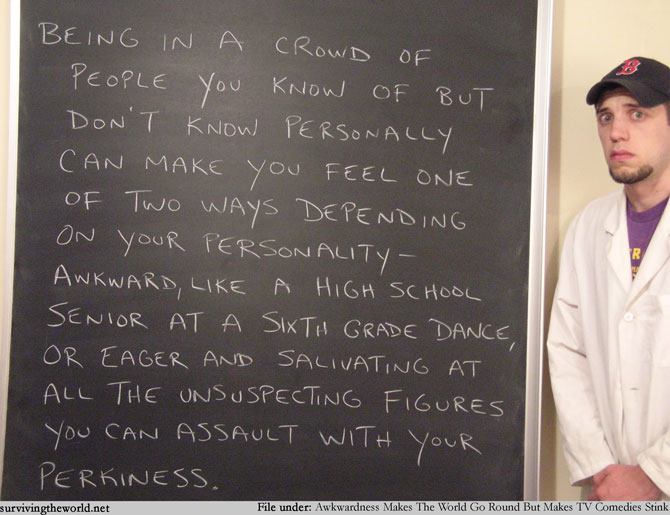 BEING IN A CROWD OF
PEOPLE YOU KNOW OF BUT
DON'T KNOW PERSONALLY
CAN MAKE YOU FEEL ONE
OF TWO WAYS DEPENDING
ON YOUR PERSONALITY—
AWKWARD, LIKE A HIGH SCHOOL
SENIOR AT A SIXTH GRADE DANCE,
OR EAGER AND SALIVATING AT
ALL THE UNSUSPECTING FIGURES
YOU CAN ASSAULT WITH YOUR
PERKINESS.
B
survivingtheworld.net
File under: Awkwardness Makes The World Go Round But Makes TV Comedies Stink